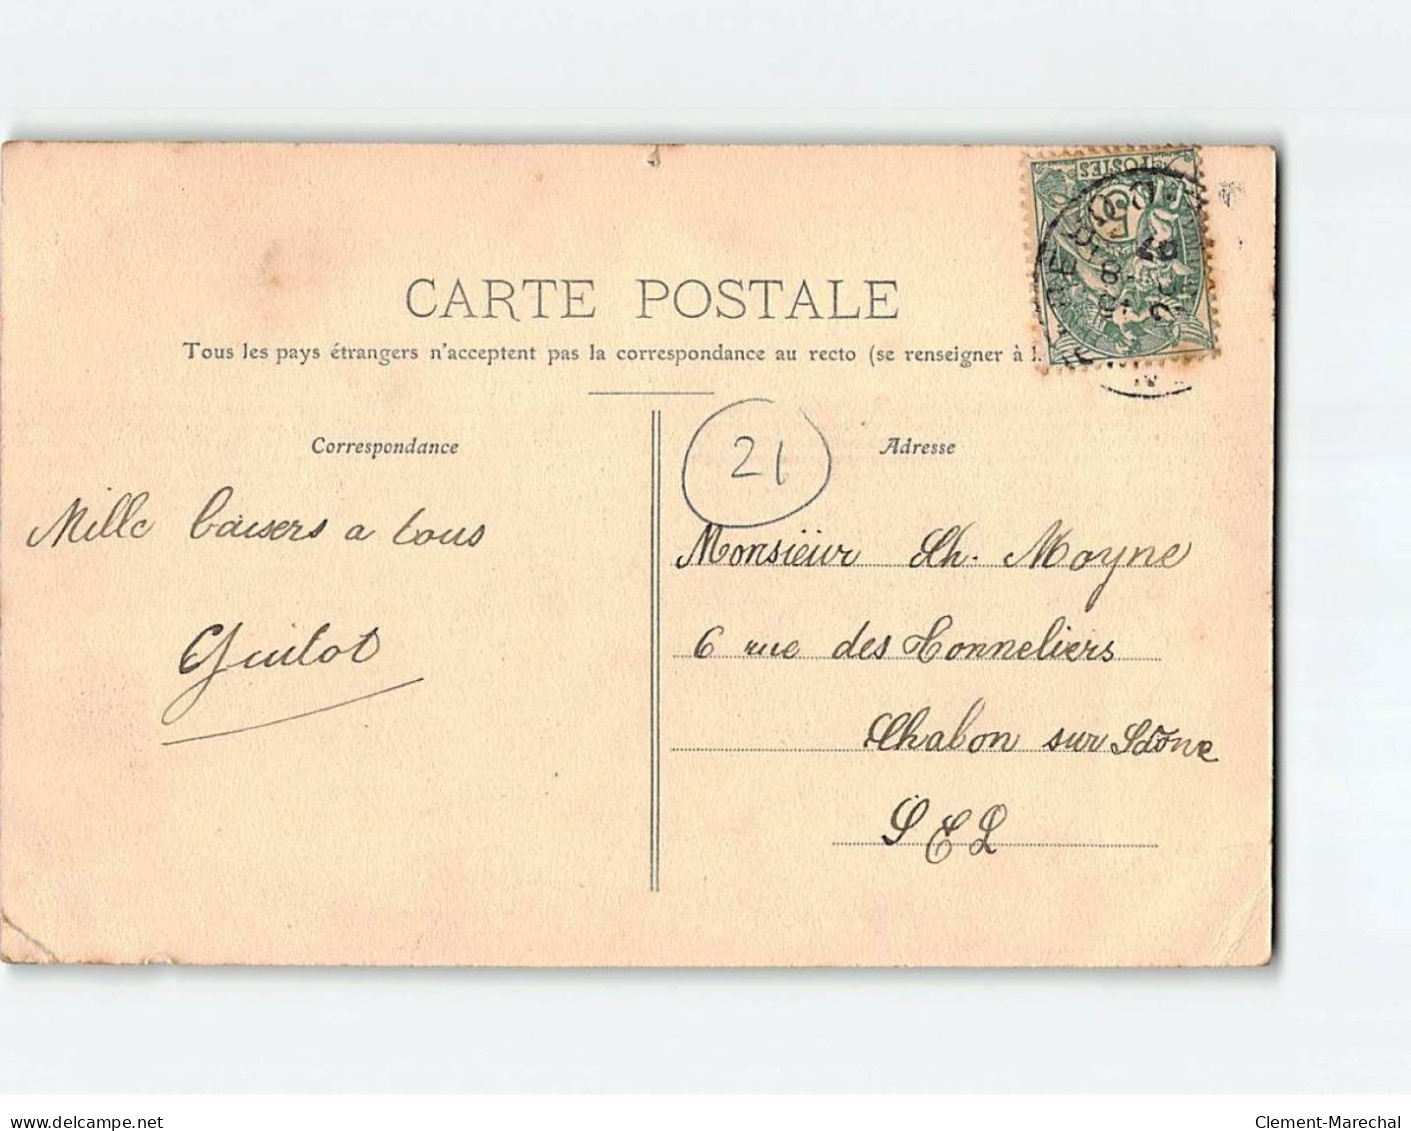 POSTES
5
CARTE POSTALE
Tous les pays étrangers n'acceptent pas la correspondance au recto (se renseigner à l
Correspondance
Adresse
21
Mille baisers a tous
Guitot
Monsieur Ch. Moyne
6 rue des Tonneliers
Chalon sur Saône
S E L
delcampe.net
Clement-Marechal